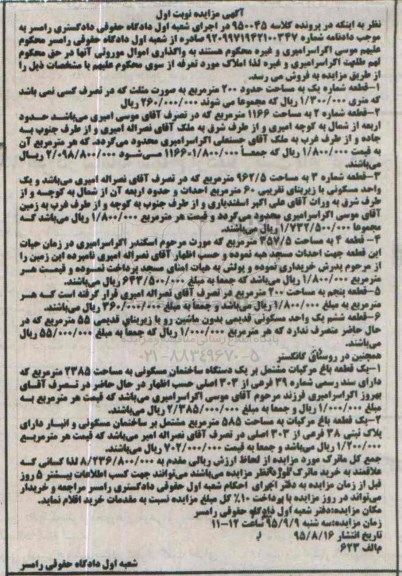 آگهی مزایده نوبت اول
نظر به اینکه در پرونده کلاسه ۹۵۰۰۴۵ در اجرای شعبه اول دادگاه حقوقی دادگستری رامسر به
موجب دادنامه شماره ۹۲۰۹۹۷۱۹۴۲۱۰۰۳۴۷ صادره از شعبه اول دادگاه حقوقی رامسر محکوم
علیهم موسی اگراسرامیری و غیره محکوم هستند به واگذاری اموال موروثی آنها در حق محکوم
لهم طلعت اگراسرامیری و غیره لذا املاک مورد تعرفه از سوی محکوم علیهم با مشخصات ذیل را
از طریق مزایده به فروش می رسد.
۱-قطعه شماره یک به مساحت حدود ۲۰۰ مترمربع به صورت مثلث که در تصرف کسی نمی باشد
که متری ۱/۳۰۰/۰۰۰ ریال که مجموعا می شوند ۲۶۰/۰۰۰/۰۰۰ ریال
۲-قطعه شماره ۲ به مساحت ۱۱۶۶ مترمربع که در تصرف آقای موسی امیری می‌باشد حدود
اربعه از شمال به کوچه امیری و از طرف شرق به ملک آقای نصراله امیری و از طرف جنوب به
جاده و از طرف غرب به ملک آقای حسنعلی اگراسرامیری محدود می‌گردد، که هر مترمربع آن
به قیمت ۱/۸۰۰/۰۰۰ ریال که جمعاً ۱/۸۰۰/۰۰۰×۱۱۶۶ می‌شود ۲/۰۹۸/۸۰۰/۰۰۰ ریال
می‌باشند.
۳-قطعه شماره ۳ به مساحت ۹۶۲/۵ مترمربع که در تصرف آقای نصراله امیری می‌باشد و یک
واحد مسکونی با زیربنای تقریبی ۶۰ مترمربع احداث و حدود اربعه آن از شمال به کوچه و از
طرف شرق به وراث آقای علی اکبر اسفندیاری و از طرف جنوب به کوچه و از طرف غرب به زمین
آقای موسی اگراسرامیری محدود می‌گردد و قیمت هر مترمربع ۱/۸۰۰/۰۰۰ ریال می‌باشد که
مجموعا ۱/۷۳۲/۵۰۰/۰۰۰ ریال می‌باشند.
۴- قطعه ۴ به مساحت ۳۵۷/۵ مترمربع که مورث مرحوم اسکندر اگراسرامیری در زمان حیات
این قطعه جهت احداث مسجد هبه نموده و حسب اظهار آقای نصراله امیری نامبرده این زمین را
از مرحوم پدرش خریداری نموده و پولش به هیات امنای مسجد پرداخت نموده و قیمت هر
مترمربع ۱/۸۰۰/۰۰۰ ریال می‌باشد که جمعا به مبلغ ۶۴۳/۵۰۰/۰۰۰ ریال می‌باشند.
۵-قطعه پنجم به مساحت ۲۰۰ مترمربع در تصرف آقای نصراله امیری قرار گرفته است که هر
مترمربع به مبلغ ۱/۸۰۰/۰۰۰ ریال می‌باشد و جمعا به مبلغ ۳۶۰/۰۰۰/۰۰۰ ریال می‌باشند.
۶-قطعه ششم یک واحد مسکونی قدیمی بدون ماشین رو با زیربنای قدیمی ۵۵ مترمربع که در
حال حاضر متصرف ندارد که هر مترمربع ۱/۰۰۰/۰۰۰ ریال که جمعا به مبلغ ۵۵/۰۰۰/۰۰۰ ریال
می‌باشند.
همچنین در روستای گالکسر
۱-یک قطعه باغ مرکبات مشتمل بر یک دستگاه ساختمان مسکونی به مساحت ۲۳۸۵ مترمربع که
دارای سند رسمی شماره ۳۹ فرعی از ۳۰۳ اصلی حسب اظهار در حال حاضر در تصرف آقای
بهروز اگراسرامیری فرزند مرحوم آقای موسی اگراسرامیری می‌باشد که قیمت هر مترمربع به
مبلغ ۱/۰۰۰/۰۰۰ ریال و جمعا به مبلغ ۲/۳۸۵/۰۰۰/۰۰۰ ریال می‌باشند.
۲-یک قطعه باغ مرکبات به مساحت ۵۸۵ مترمربع مشتمل بر ساختمان مسکونی و انبار دارای
پلاک ثبتی ۳۸ فرعی از ۳۰۳ اصلی در تصرف آقای نصراله امیر می‌باشد که قیمت هر مترمربع
۱/۲۰۰/۰۰۰ ریال می‌باشد و جمعا به قیمت ۷۰۲/۰۰۰/۰۰۰ ریال می‌باشند.
جمع کل ماترک مورد مزایده از لحاظ ارزش ریالی مقدم به ۸/۲۳۶/۸۰۰/۰۰۰ لذا کسانی که
علاقمند به خرید ماترک فوق‌الذکر مزایده می‌باشند می‌توانند جهت کسب اطلاعات بیشتر ۵ روز
قبل از زمان مزایده به دفتر اجرای احکام شعبه اول حقوقی دادگستری رامسر مراجعه و خریدار
می‌تواند در روز مزایده با پرداخت ۱۰٪ کل مبلغ مزایده نسبت به مقدمات خرید اقلام نماید.
مکان مزایده:دفتر شعبه اول دادگاه حقوقی رامسر
زمان مزایده:سه شنبه ۹۵/۹/۹ ساعت ۱۲-۱۱
تاریخ انتشار ۹۵/۸/۱۶
م/الف ۶۲۳
شعبه اول دادگاه حقوقی رامسر
۰۲۱-۸۸۳۴۹۶۷۰-۵